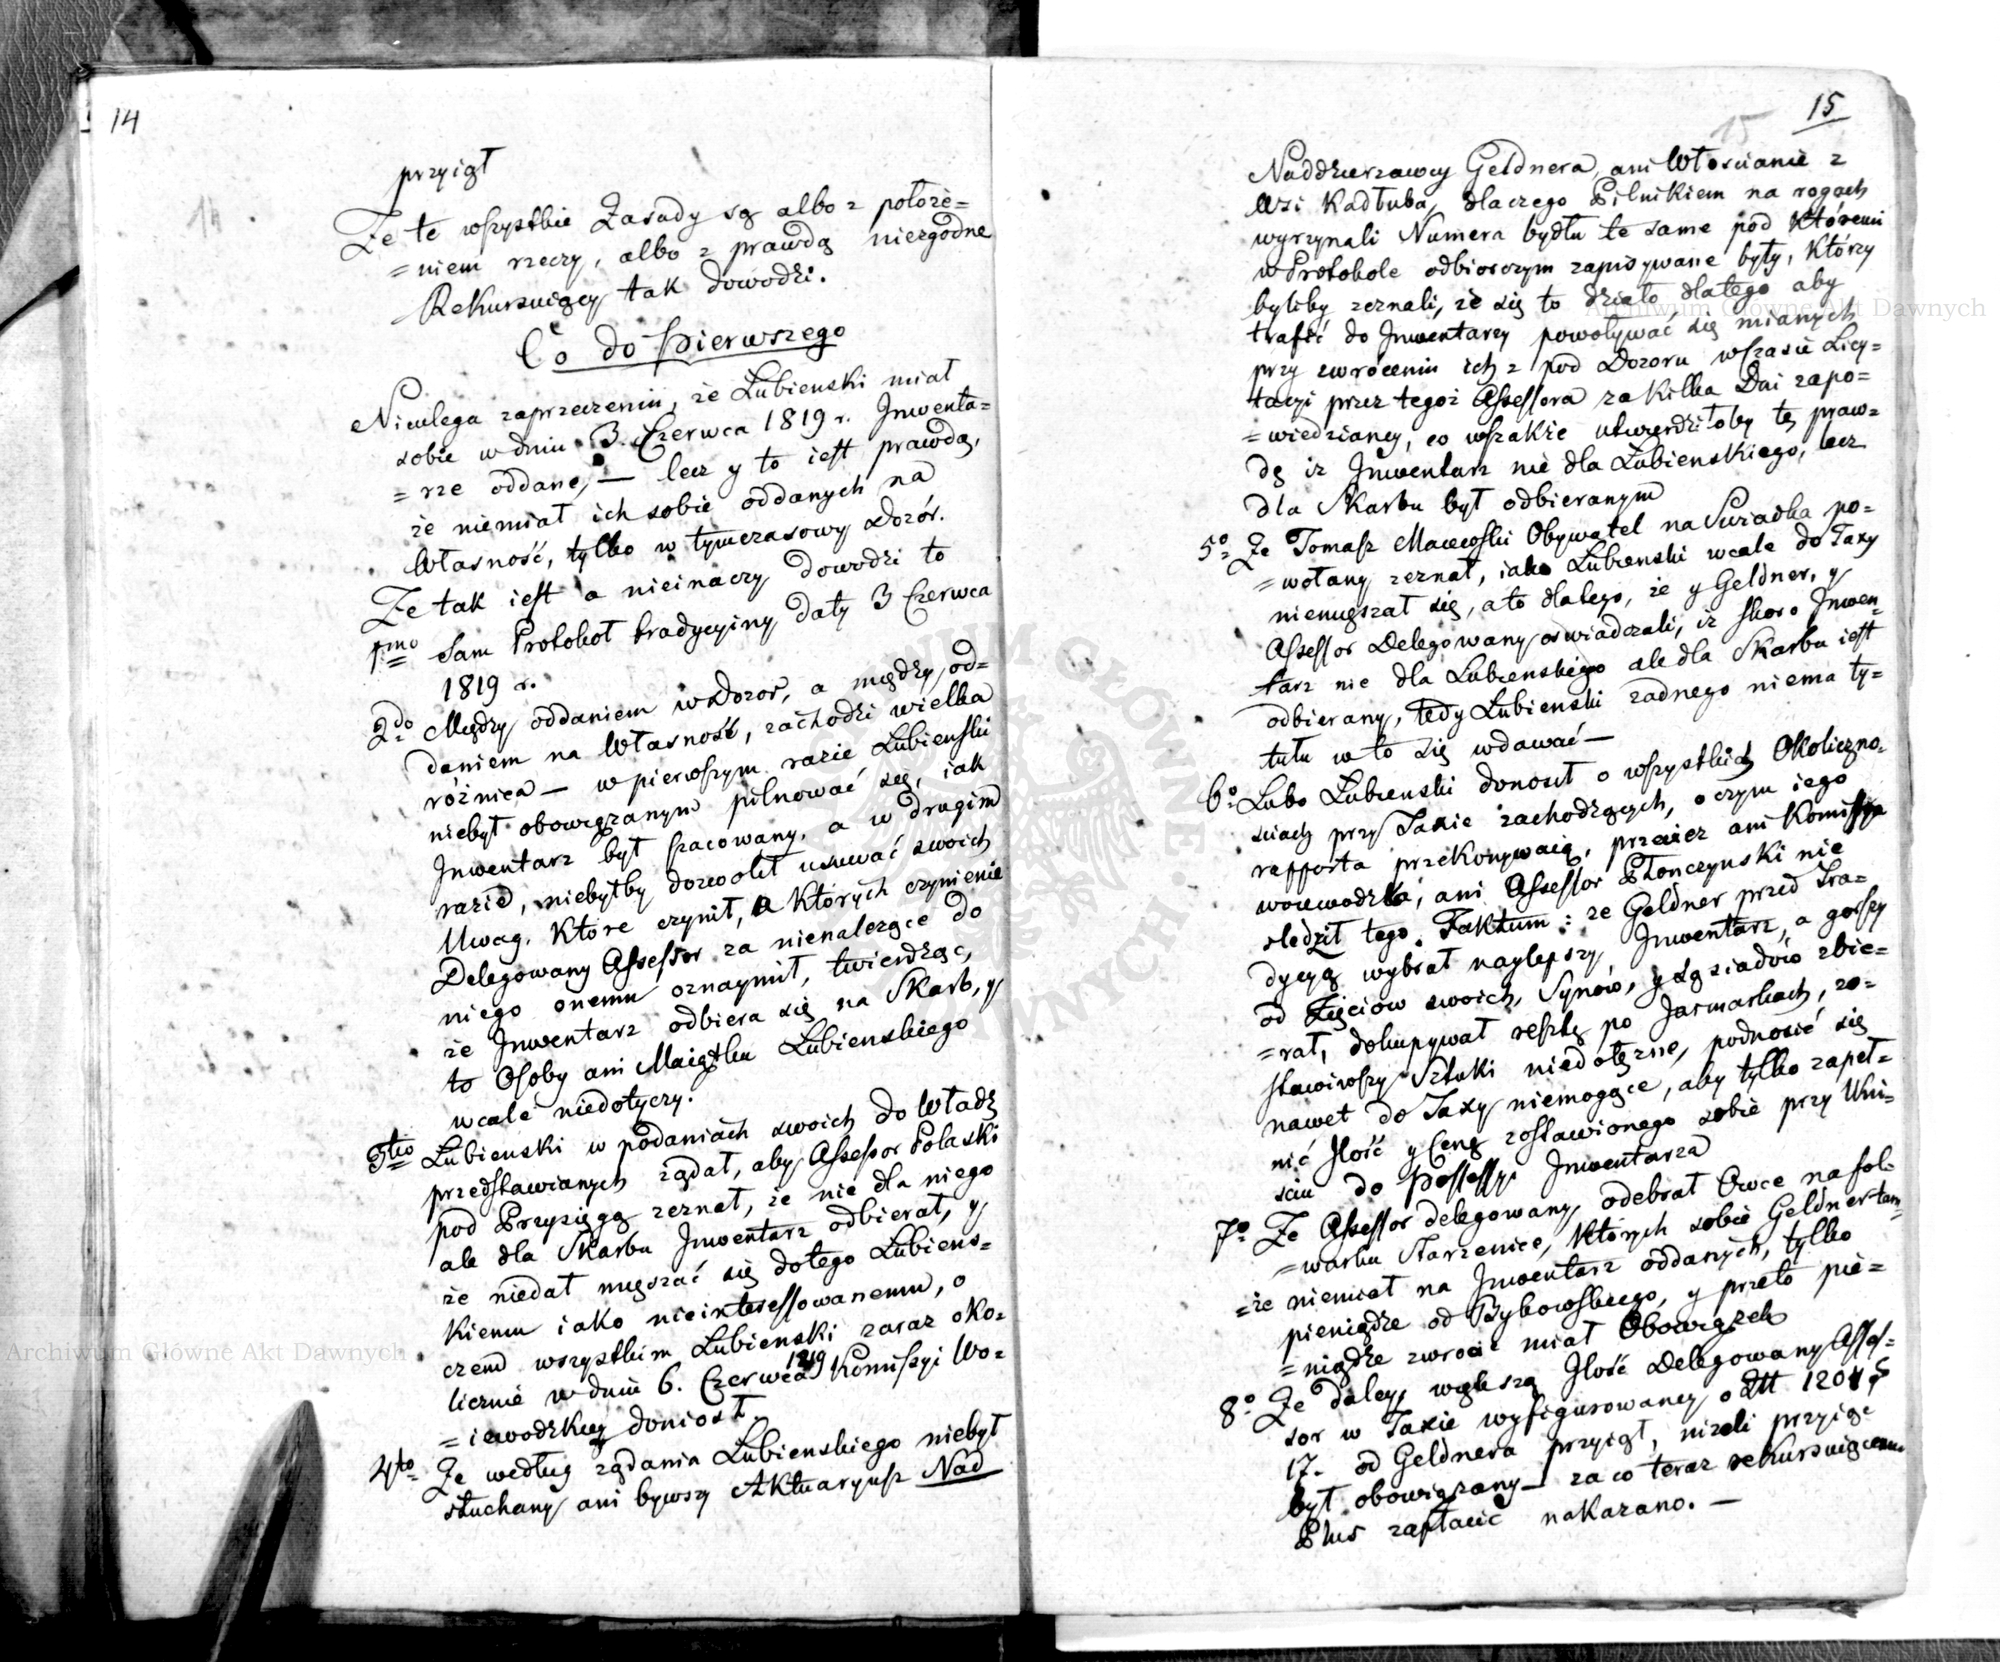 14
przyiął
Że te wszystkie Zasady są albo z położe=
=niem rzeczy, albo z prawdą niezgodne
Rekursuiący tak dowodzi.
Co do pierwszego
Nieulega zaprzeczeniu, że Łubienski miał
sobie w dniu 3 Czerwca 1819 r. Inwenta=
=rze oddane, — lecz y to iest prawdą,
że niemiał ich sobie oddanych na
Własność, tylko w tymczasowy Dozór.
Że tak iest a nieinaczy dowodzi to
1mo Sam Protokoł tradycyiny daty 3 Czerwca
1819 r.
2do Między oddaniem w Dozor, a między od=
daniem na Własność, zachodzi wielka
różnica — w pierwszym razie Łubienski
niebył obowiązanym pilnować się, iak
Inwentarz był szacowany, a w drugim
razie, niebyłby dozwolił usuwać swoich
Uwag, które czynił, a których czynienie
Delegowany Assessor za nienależące do
niego onemu oznaymił, twierdząc,
że Inwentarz odbiera się na Skarb, y
to Osoby ani Maiątku Łubienskiego
wcale niedotyczy.
3tio Łubienski w podaniach swoich do Władz
przedstawianych żądał, aby Assessor Polaski
pod Przysięgą zeznał, że nie dla niego
ale dla Skarbu Inwentarz odbierał, y
że niedał mięszać się do tego Łubiens=
kiemu iako nieinteressowanemu, o
czem wszystkim Łubienski zaraz oko=
licznie w dniu 6. Czerwca 1819 Kommissyi Wo=
=iewodzkiey doniosł.
4to Że według żądania Łubienskiego niebył
słuchany ani bywszy Aktuaryusz Nad
15
15
Naddzierzawcy Geldnera, ani Włoscianie z
Wsi Kadłuba, dlaczego Pilnikiem na rogach
wyrzynali Numera bydłu te same pod któremi
w Protokole odbiorczym zapisywane były, którzy
byliby zeznali, że się to działo dlatego aby
trafić do Inwentarzy powoływać się mianych
przy zwróceniu ich z pod Dozoru w czasie Licy=
tacyi przez tegoż Assessora za kilka Dni zapo=
=wiedzianey, co wszakże utwierdziłoby tę praw=
dę iż Inwentarz nie dla Łubienskiego, lecz
dla Skarbu był odbieranym
5o Że Tomasz Obywatel na Swiadka po=
=wołany zeznał, iako Łubienski wcale do Taxy
niemięszał się, a to dlatego, że y Geldner, y
Assessor Delegowany oswiadczali, iż skoro Inwen=
tarz nie dla Łubienskiego ale dla Skarbu iest
odbierany, tedy Łubienski żadnego niema ty=
tułu w to się wdawać —
6o Lubo Łubienski donosił o wszystkich Okoliczno=
sciach przy Taxie zachodzących, o czym iego
rapporta przekonywaią, przecież ani Kommissya
woiewodzka, ani Assessor Płonczynski nie
sledził tego Faktum: że Geldner przed Tra=
dycyą wybrał naylepszy Inwentarz, a gorszy
od Zięciów swoich, Synów, y Sąsiadów zbie=
=rał, dokupywał resztę po Jarmarkach, zo=
stawiwszy Sztuki niedołężne, podnosić się
nawet do Taxy niemogące, aby tylko zapeł=
nić Ilość y Cenę zostawionego sobie przy Wni=
sciu do Possessyi Inwentarza
7o Że Assessor delegowany, odebrał Owce na fol=
=warku Starzenice, których sobie Geldner tam
=że niemiał na Inwentarz oddanych, tylko
pieniądze od Rykowskiego, y przeto pie=
=niądze zwrocić miał Obowiązek
8o Że daley większą Ilość Delegowany Asses=
sor w Taxie wyfigurowaney o
17. od Geldnera przyiął, niżeli przyiąc
był obowiązany — za co teraz rekursuiącemu
Plus zapłacić nakazano. —